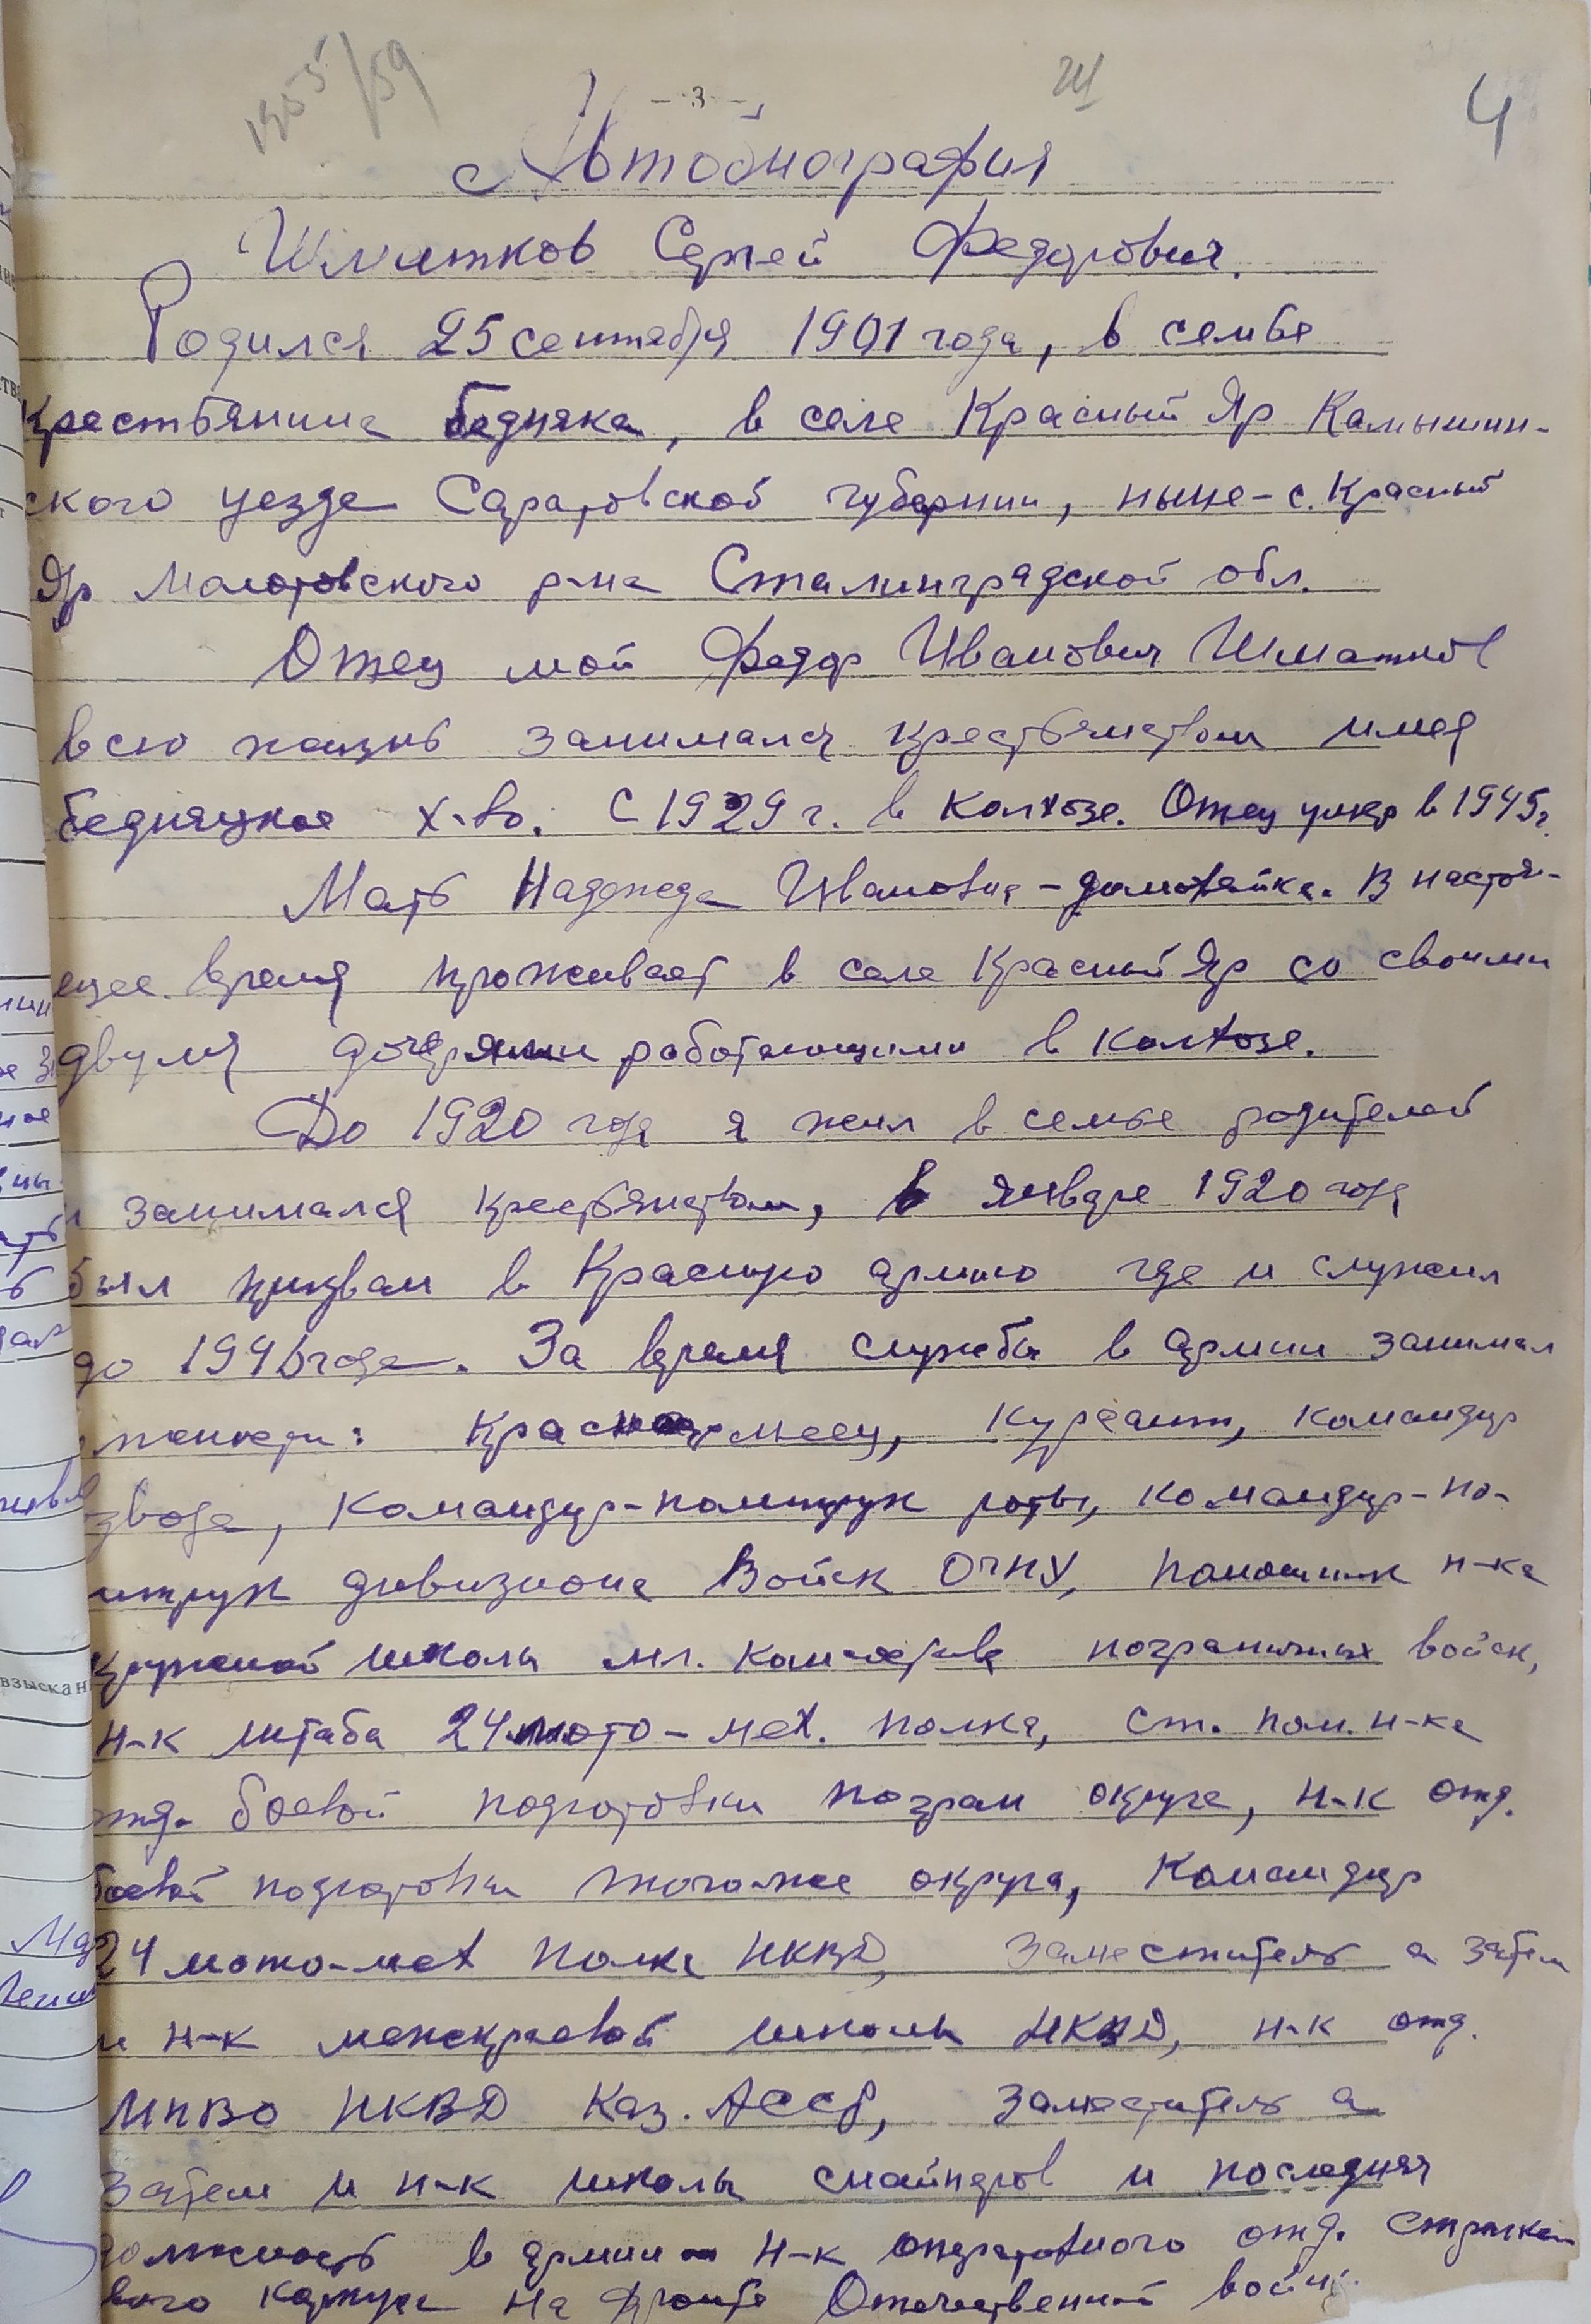 1955/59
- 3 -
4
Автобиография
Шматков Сергей Федорович.
Родился 25 сентября 1901 года, в семье
крестьянина бедняка, в селе Красный Яр Камышин-
ского уезда Саратовской губернии, ныне - с. Красный
Яр Молотовского р-на Сталинградской обл.
Отец мой Федор Иванович Шматков
всю жизнь занимался крестьянством имея
бедняцкое х-во. С 1929 г. в колхозе. Отец умер в 1945 г.
Мать Надежда Ивановна - домохозяйка. В настоя-
щее время проживает в селе Красный Яр со своими
двумя дочерями работающими в колхозе.
До 1920 года я жил в семье родителей
и занимался крестьянством, в январе 1920 года
был призван в Красную армию где и служил
до 1946 года. За время службы в армии занимал
должности: красноармеец, курсант, командир
взвода, командир-политрук роты, командир-по-
литрук дивизиона войск ОГПУ, помощник н-ка
окружной школы мл. комсостава пограничных войск,
н-к штаба 24 мото-мех. полка, ст. пом. н-ка
отд. боевой подготовки погран округа, н-к отд.
боевой подготовки того же округа, командир
24 мото-мех полка НКВД, заместитель а затем
и н-к межкраевой школы НКВД, н-к отд.
МПВО НКВД Каз. АССР, заместитель а
затем и н-к школы снайперов и последняя
должность в армии - н-к оперативного отд. стрелко-
вого корпуса на фронте Отечественной войны.
взыскан